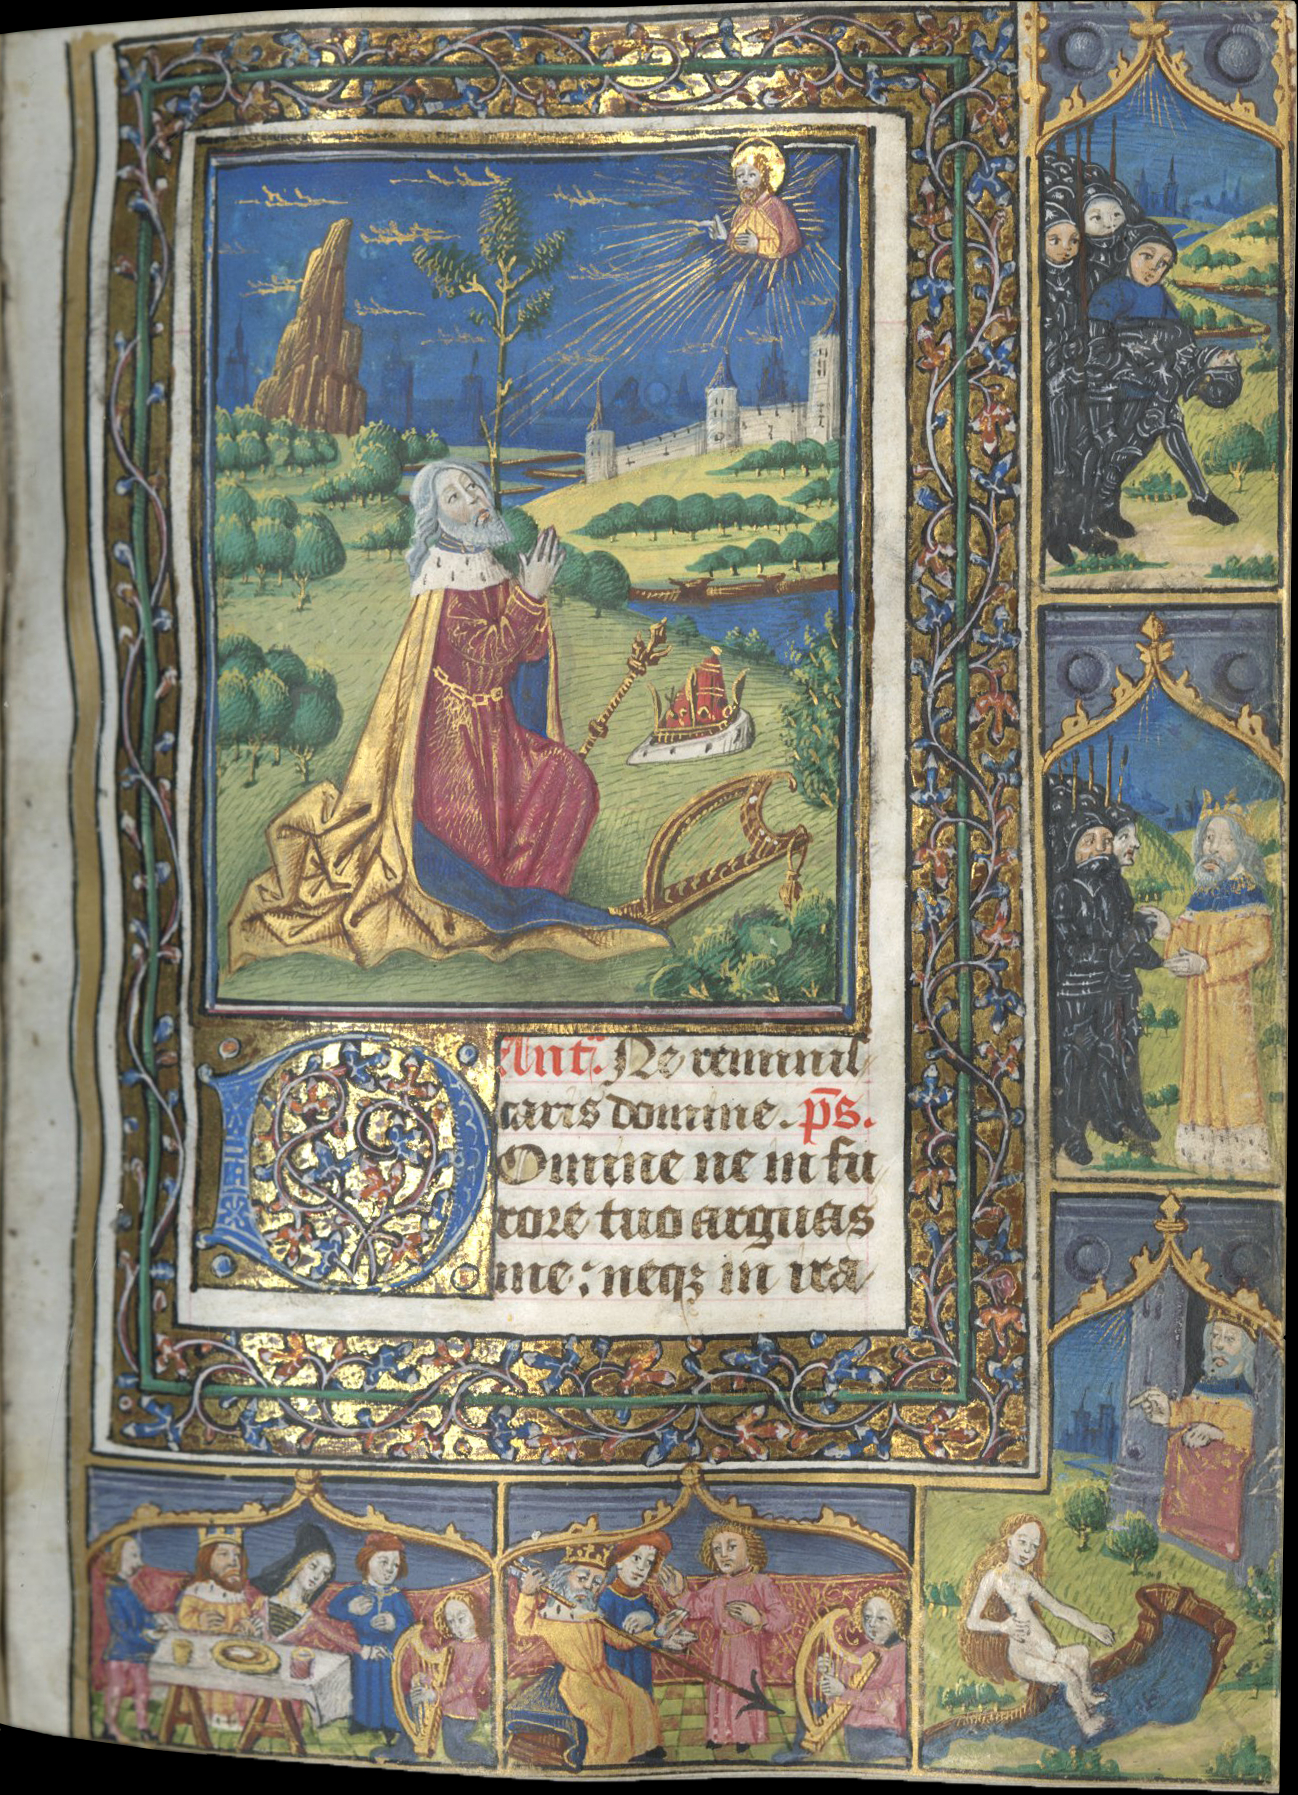 Ant. Ne reminis
caris domine. ps.
Domine ne in fu
rore tuo arguas
me: neqz in ira